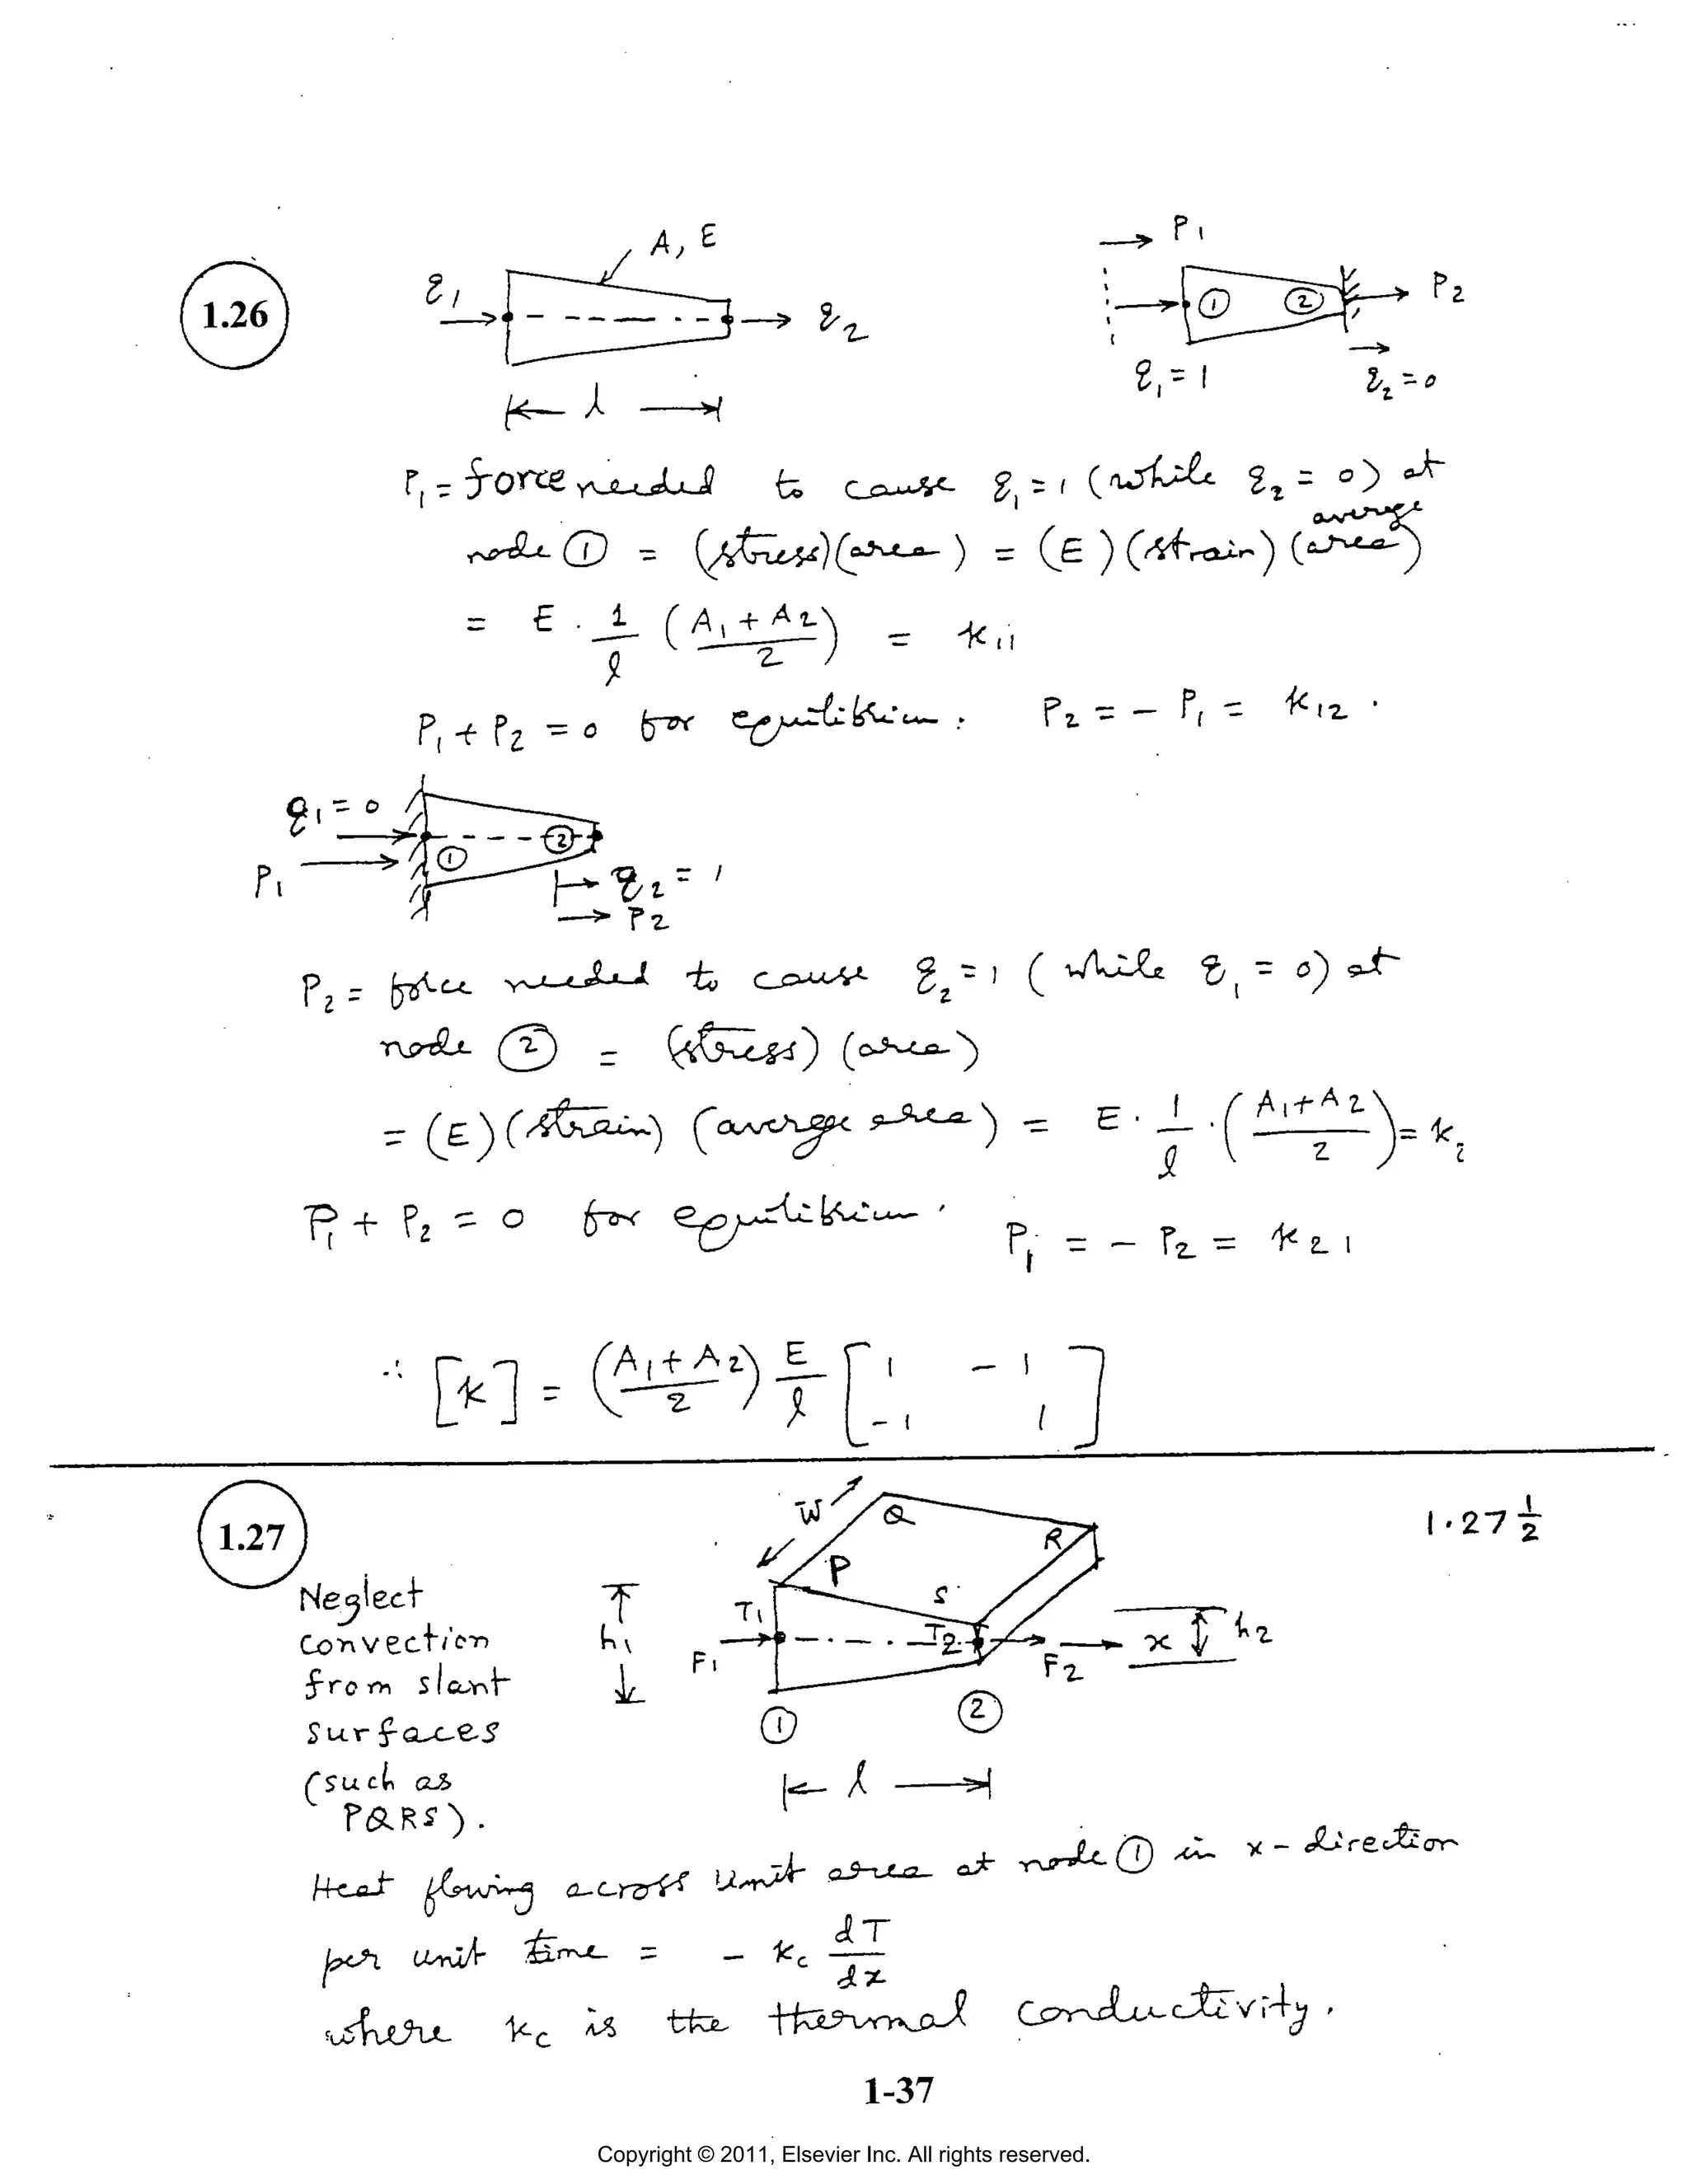 1.26
A, E
q1
q2
l
P1
① ②
P2
q1 = 1
q2 = 0
P1 = force needed to cause q1 = 1 (while q2 = 0) at
average
node ① = (stress)(area) = (E)(strain)(area)
= E . 1/l ((A1 + A2)/2) = k11
P1 + P2 = 0 for equilibrium. P2 = - P1 = k12 .
q1 = 0
②
①
P1
q2 = 1
P2
P2 = force needed to cause q2 = 1 (while q1 = 0) at
node ② = (stress) (area)
= (E)(strain) (averge area) = E . 1/l . ((A1+A2)/2) = k2
P1 + P2 = 0 for equilibrium. P1 = - P2 = k21
∴ [k] = ((A1+A2)/2) E/l [ 1 - 1
-1 1 ]
1.27
1.27 1/2
W
Q
R
P
S
Neglect
convection
from slant
surfaces
(such as
PQRS).
h1
T1
F1
T2
F2
x
h2
① ②
l
Heat flowing across unit area at node ① in x-direction
per unit time = - kc dT/dx
where kc is the thermal conductivity.
1-37
Copyright © 2011, Elsevier Inc. All rights reserved.